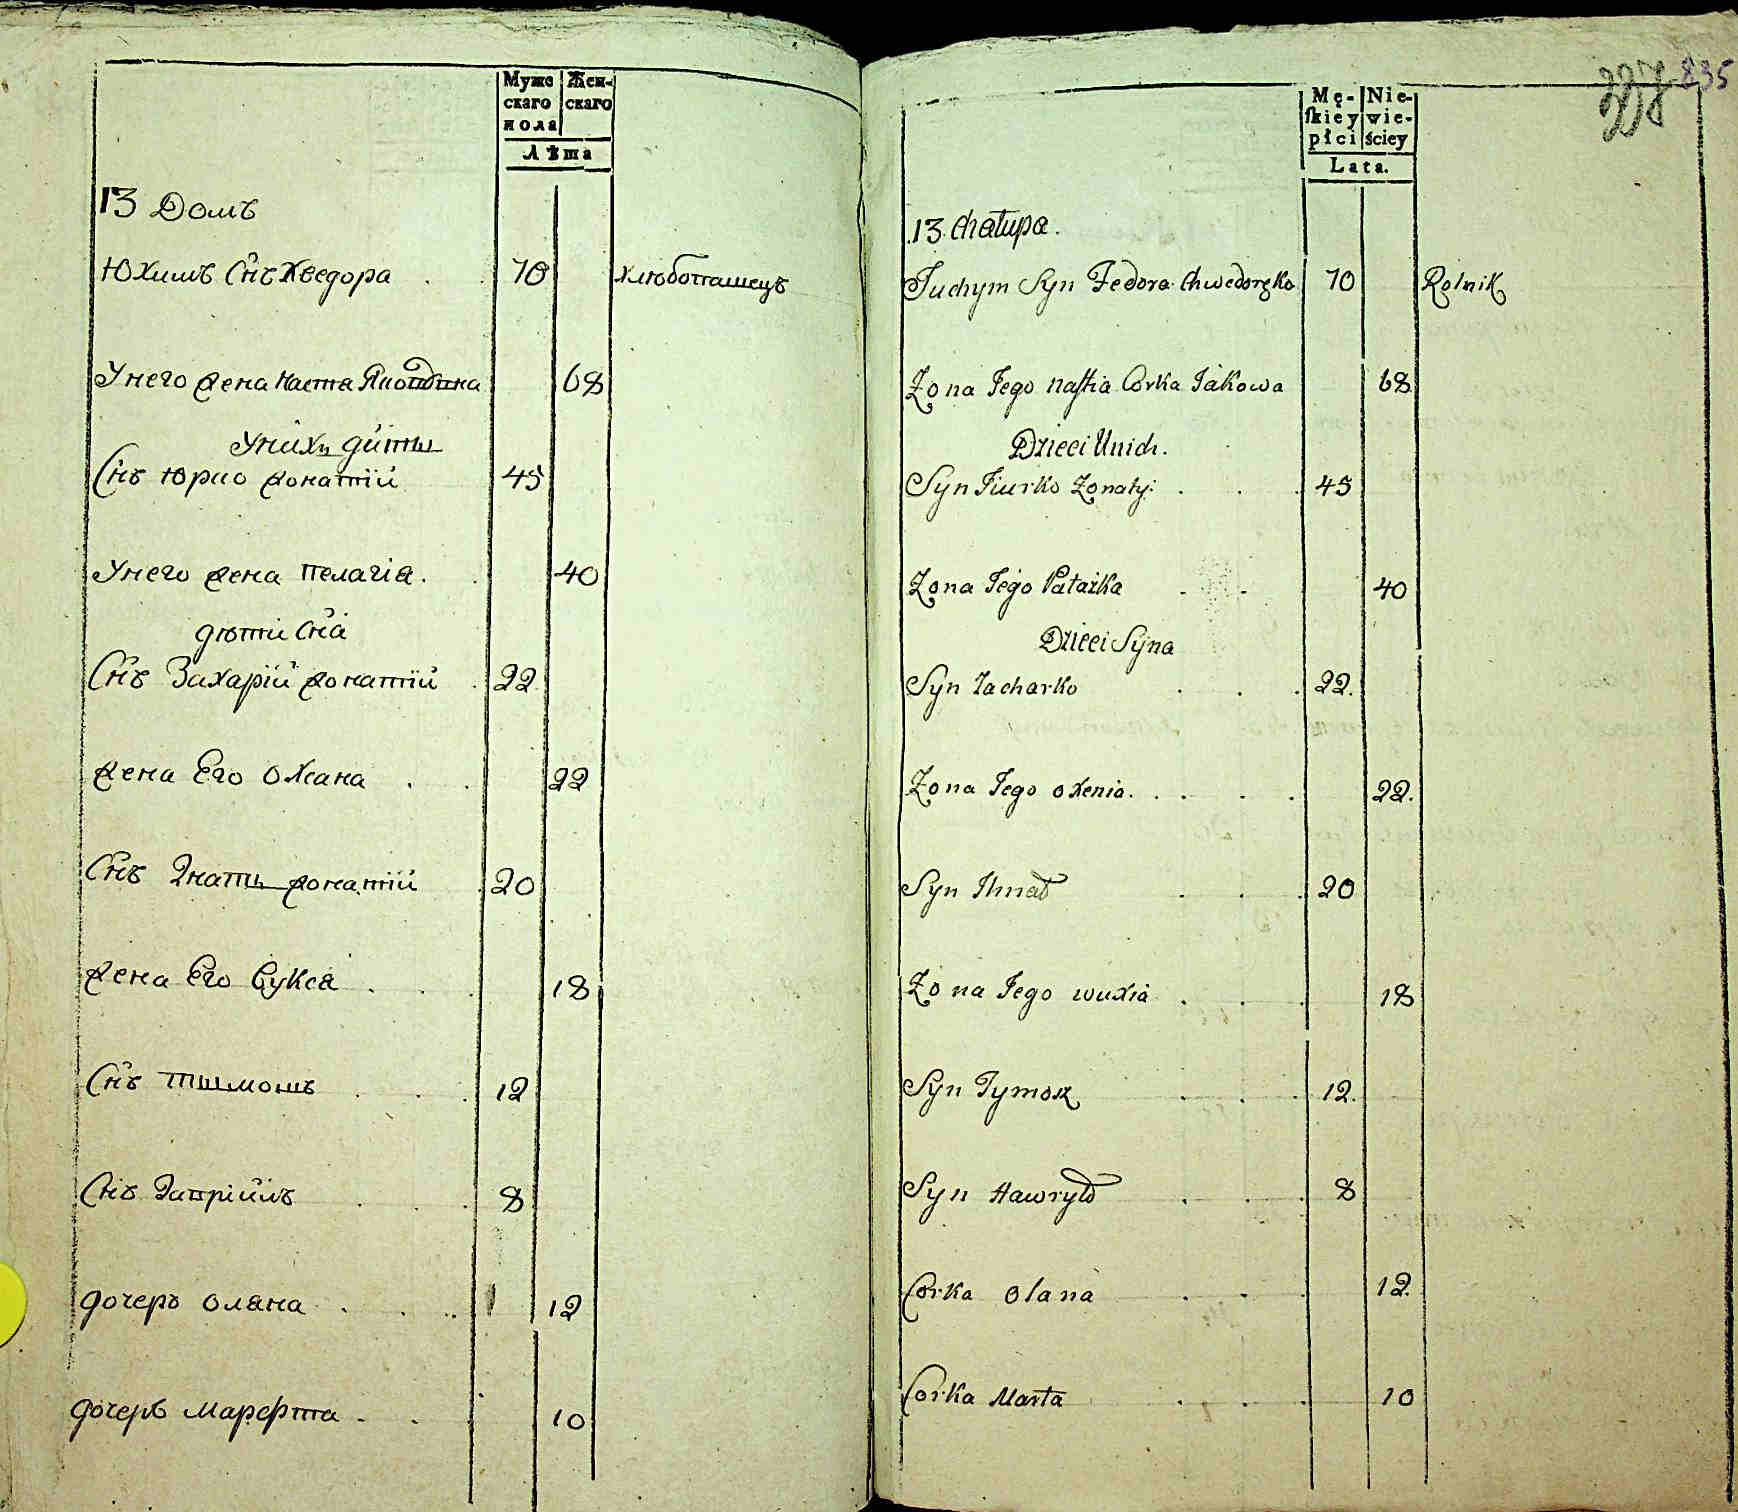 Муже
скаго
пола
Жен-
скаго
Лѣта
13 Домъ
Юхимъ Снъ Хведора 70 хлѣбопашецъ
Унего жена Настя 68
Унихъ дѣти
Снъ Юрко жонатій 45
Унего жена Пелагія. 40
дѣти Сна
Снъ Захарій жонатій 22
жена Его Оксана 22
Снъ Ігнатъ жонатій 20
жена Его Вукся 18
Снъ Тымошъ 12
Снъ 8
дочеръ Оляна 12
дочеръ Марефта 10
227 835
Mę-
ſkiey
płci
Nie-
wie-
ściey
Lata.
13 Chałupa.
Juchym Syn Fedora Chwedoręko 70 Rolnik
Zona Jego Naſtia Corka Jakowa 68
Dzieci Unich.
Syn Jiurko Zonaty: 45
Zona Jego Pałażka 40
Dzieci Syna
Syn Zacharko 22.
Zona Jego oxenia. 22.
Syn Ihnat 20
Zona Jego wuxia 18
Syn Tymosz 12.
Syn Hawryło 8
Corka olana 12.
Corka Marta 10